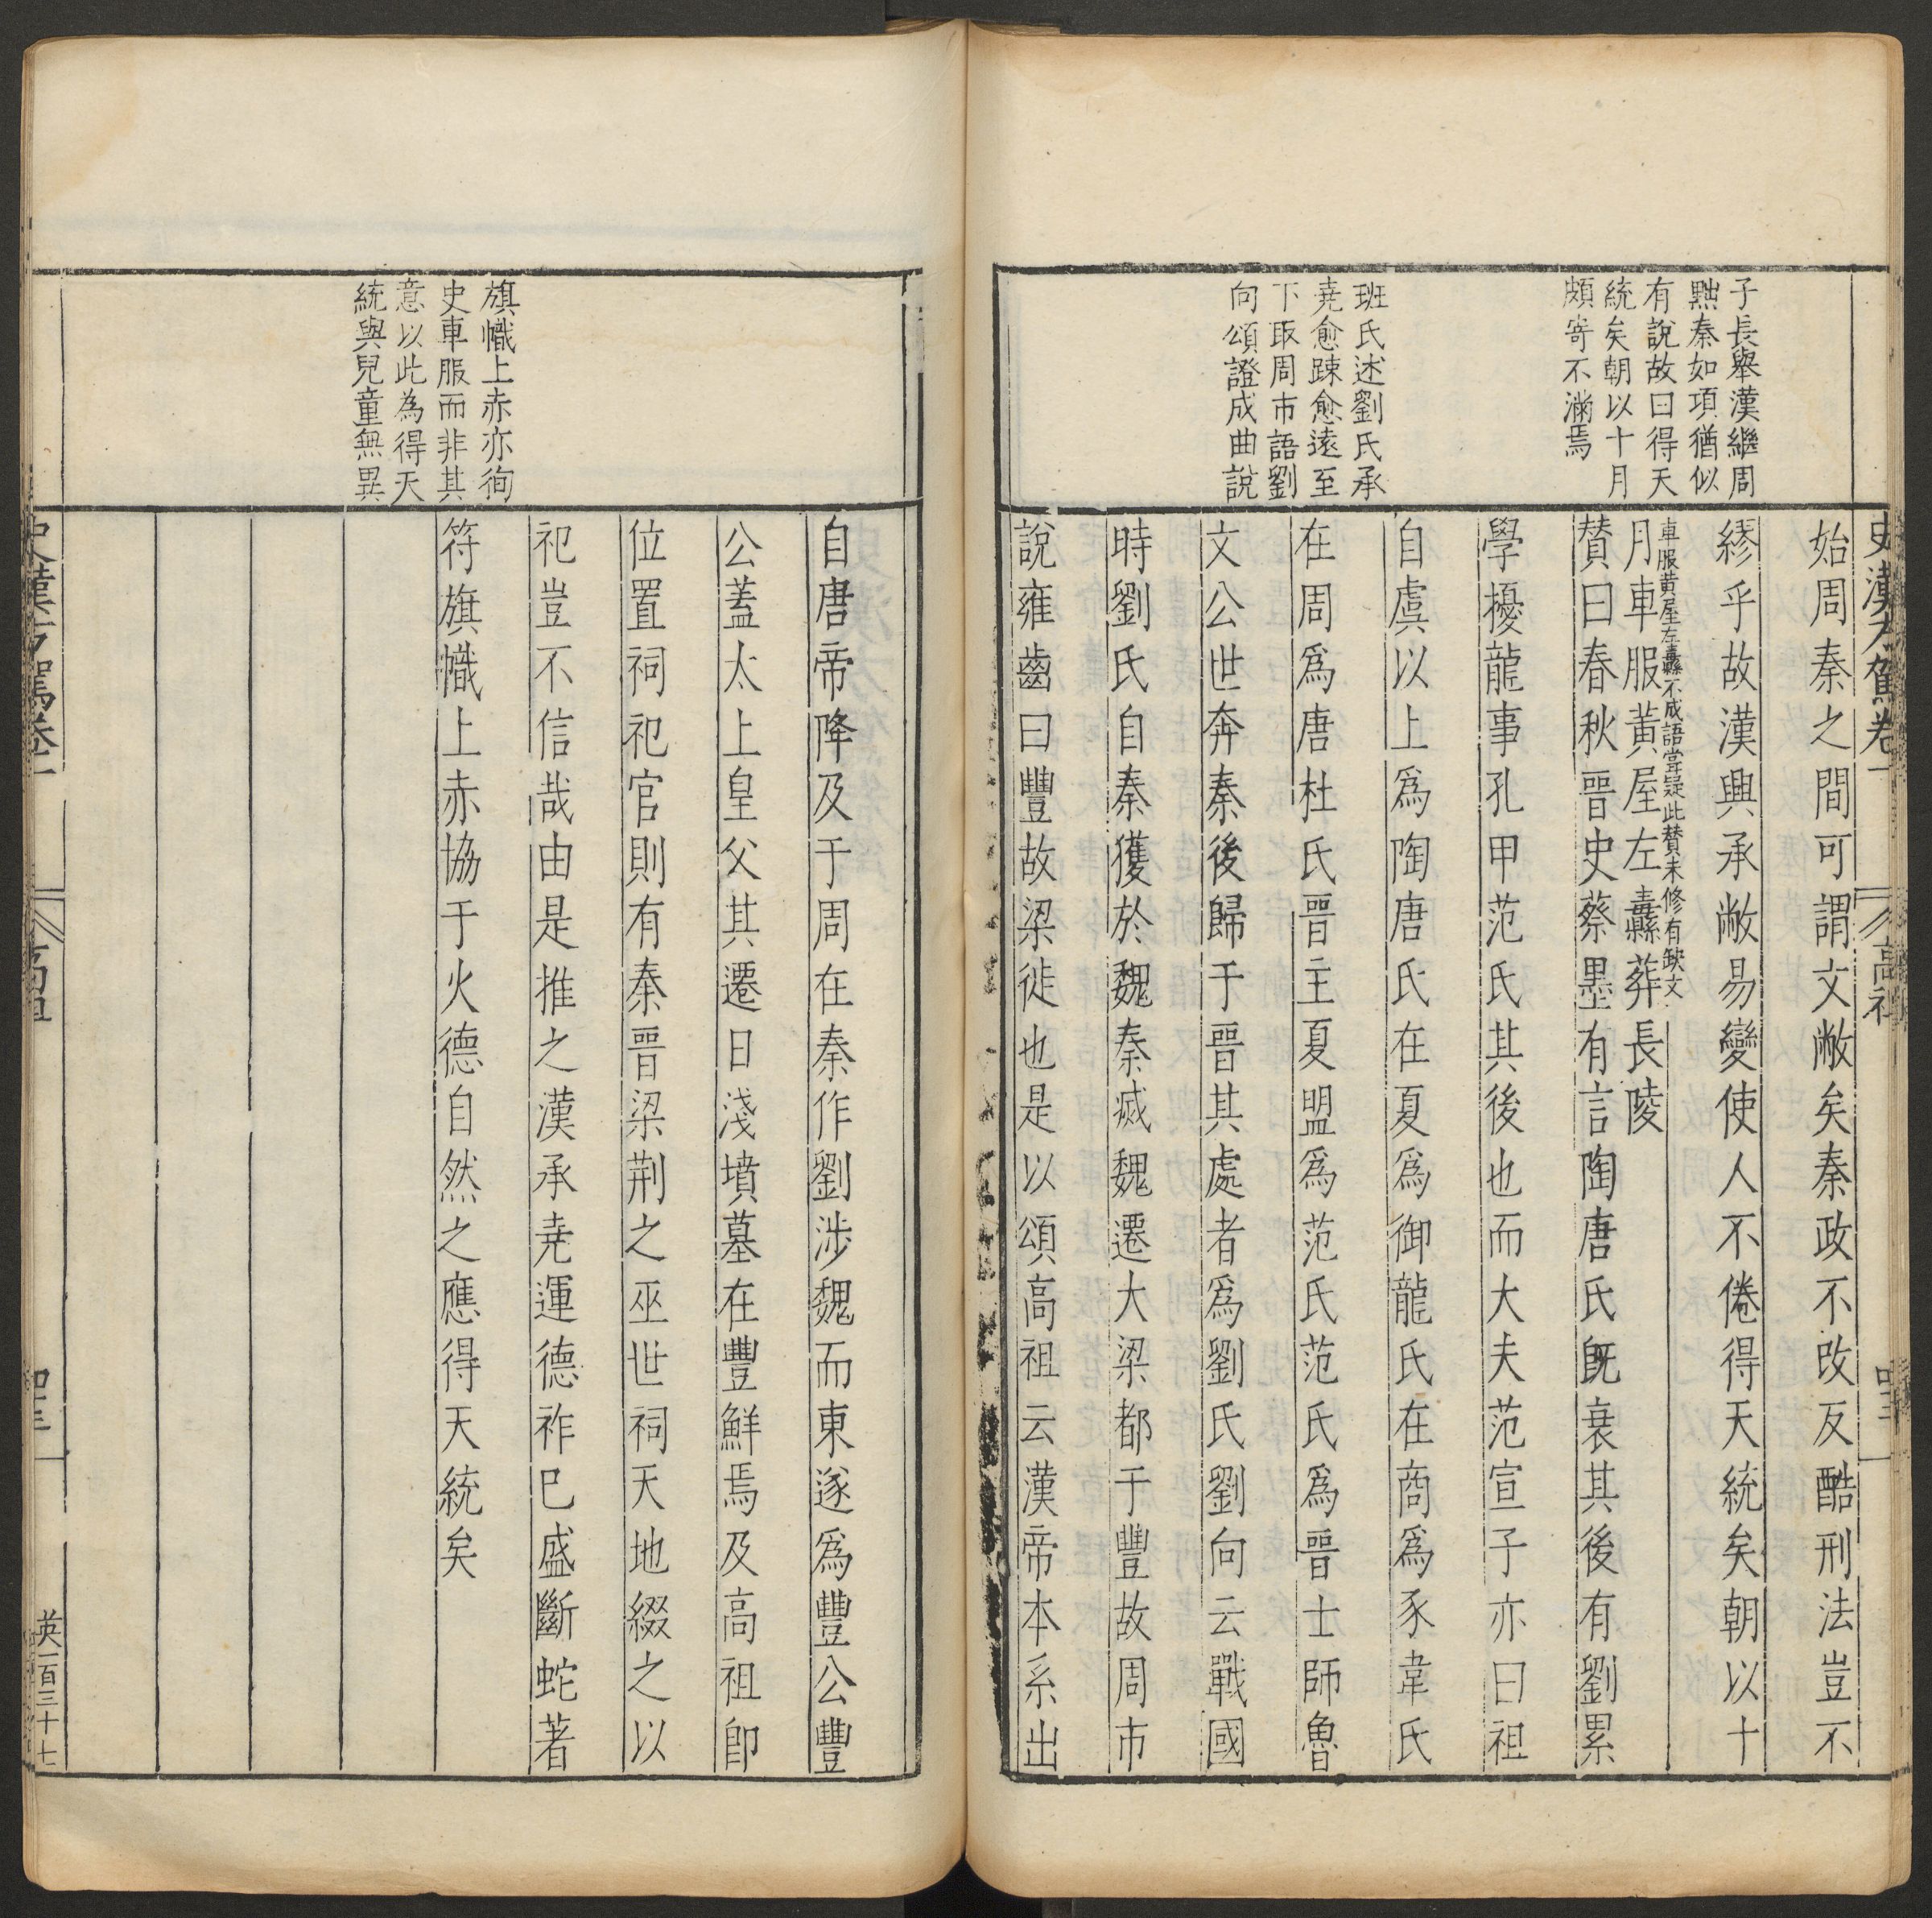 史漢方駕卷一
高祖
子長舉漢繼周
黜秦如項猶似
有說故曰得天
統矣朝以十月
頗寄不滿焉
班氏述劉氏承
堯愈踈愈遠至
下取周市語劉
向頌證成曲說
始周秦之間可謂文敝矣秦政不改反酷刑法豈不
繆乎故漢興承敝易變使人不倦得天統矣朝以十
車服黃屋左纛不成語當是此賛未修有缺文
月車服黃屋左纛葬長陵
賛曰春秋晉史蔡墨有言陶唐氏既衰其後有劉累
學擾龍事孔甲范氏其後也而大夫范宣子亦曰祖
自虞以上爲陶唐氏在夏爲御龍氏在商爲豕韋氏
在周爲唐杜氏晉主夏盟爲范氏范氏爲晉士師魯
文公世奔秦後歸于晉其處者爲劉氏劉向云戰國
時劉氏自秦獲於魏秦滅魏遷大梁都于豐故周市
說雍齒曰豐故梁徙也是以頌高祖云漢帝本系出
旗幟上赤亦徇
史車服而非其
意以此為得天
統與兒童無異
自唐帝降及于周在秦作劉涉魏而東遂爲豐公豐
公蓋太上皇父其遷日淺墳墓在豐鮮焉及高祖卽
位置祠祀官則有秦晉梁荊之巫世祠天地綴之以
祀豈不信哉由是推之漢承堯運德祚巳盛斷蛇著
符旗幟上赤協于火德自然之應得天統矣
史漢方駕卷一
英一百三十七